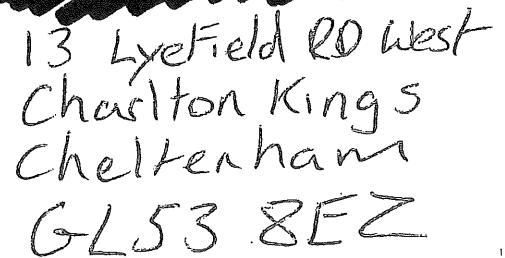 13 Lyefield RD West
Charlton Kings
Cheltenham
GL53 8EZ